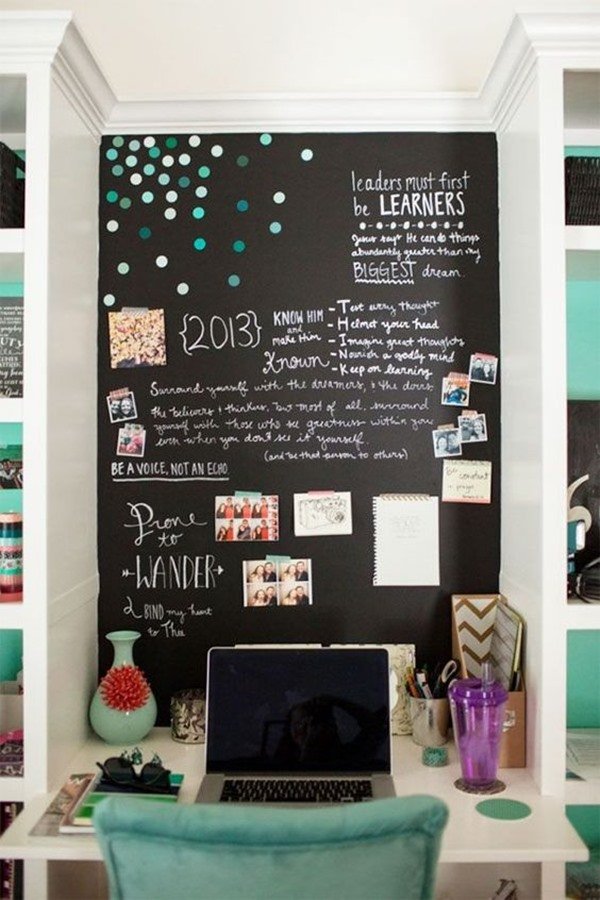 leaders must first
be LEARNERS
Jesus says He can do things
abundantly greater than my
BIGGEST dream.
{2013}
KNOW HIM
and
make Him
Known
- Test every thought
- Helmet your head
- Imagine great thoughts
- Nourish a godly mind
- Keep on learning
Surround yourself with the dreamers, & the doers,
the believers & thinkers, but most of all, surround
yourself with those who see greatness within you
even when you don't see it yourself.
(and be that person to others)
BE A VOICE, NOT AN ECHO.
Be
constant
in
prayer
Prone
to
WANDER
BIND my heart
to Thee